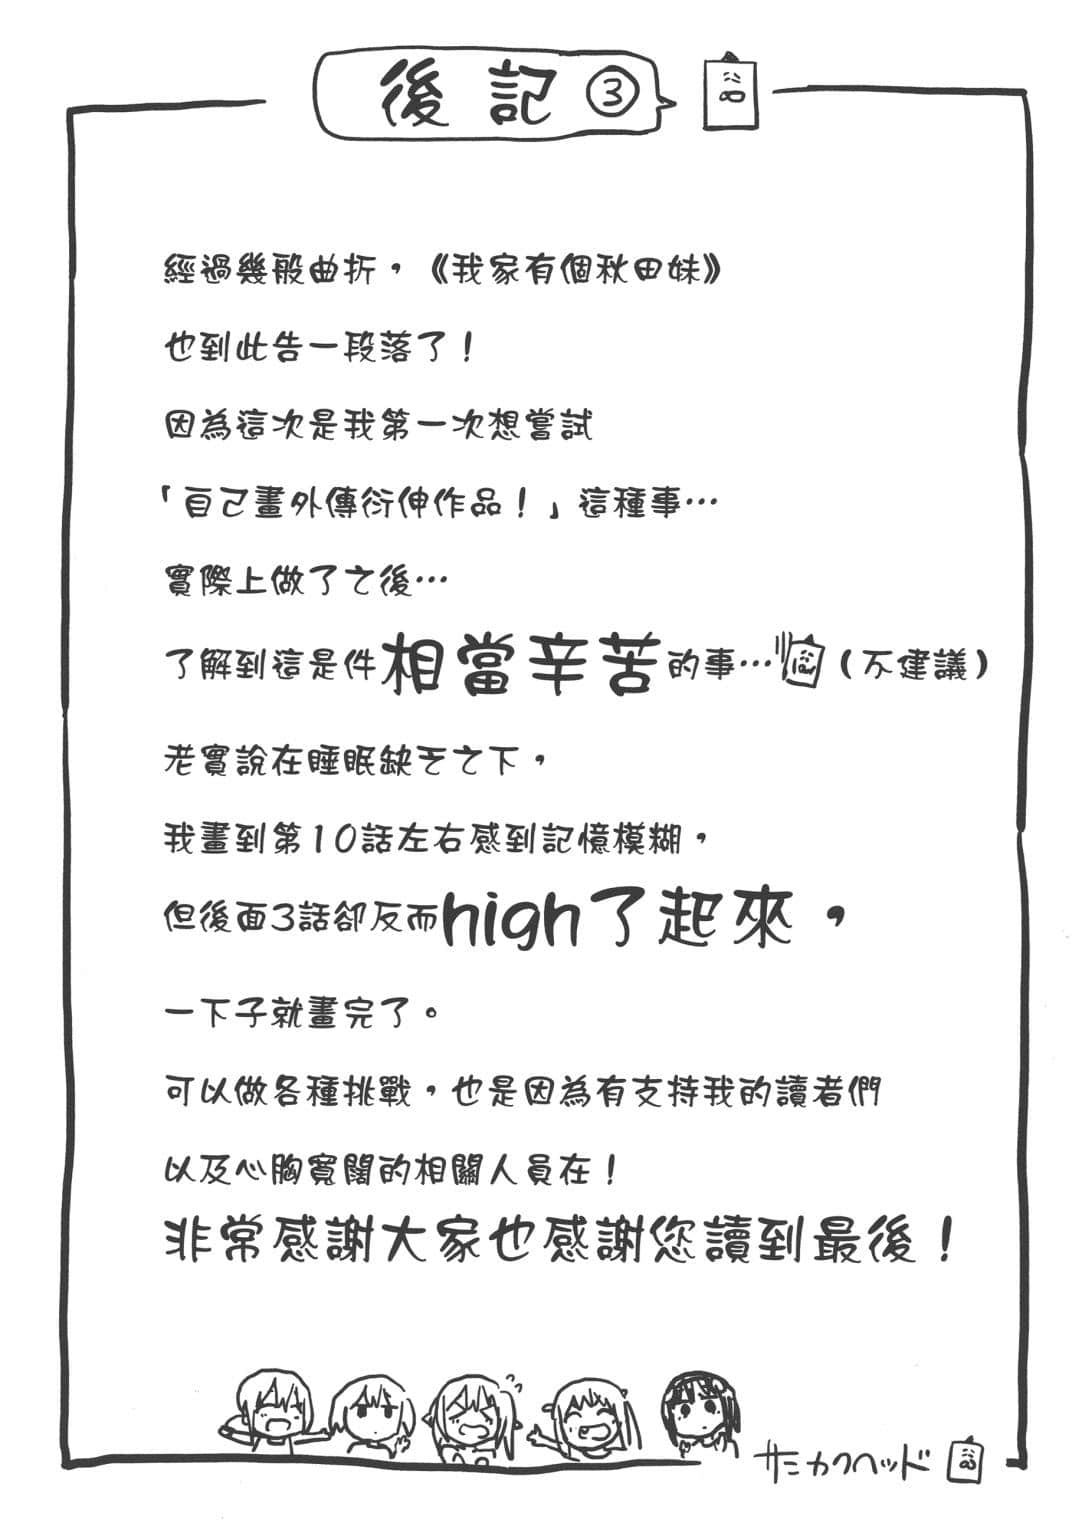 後記③
經過幾般曲折，《我家有個秋田妹》
也到此告一段落了！
因為這次是我第一次想嘗試
「自己畫外傳衍伸作品！」這種事…
實際上做了之後…
了解到這是件相當辛苦的事…（不建議）
老實說在睡眠缺乏之下，
我畫到第10話左右感到記憶模糊，
但後面3話卻反而high了起來，
一下子就畫完了。
可以做各種挑戰，也是因為有支持我的讀者們
以及心胸寬闊的相關人員在！
非常感謝大家也感謝您讀到最後！
サンカクヘッド